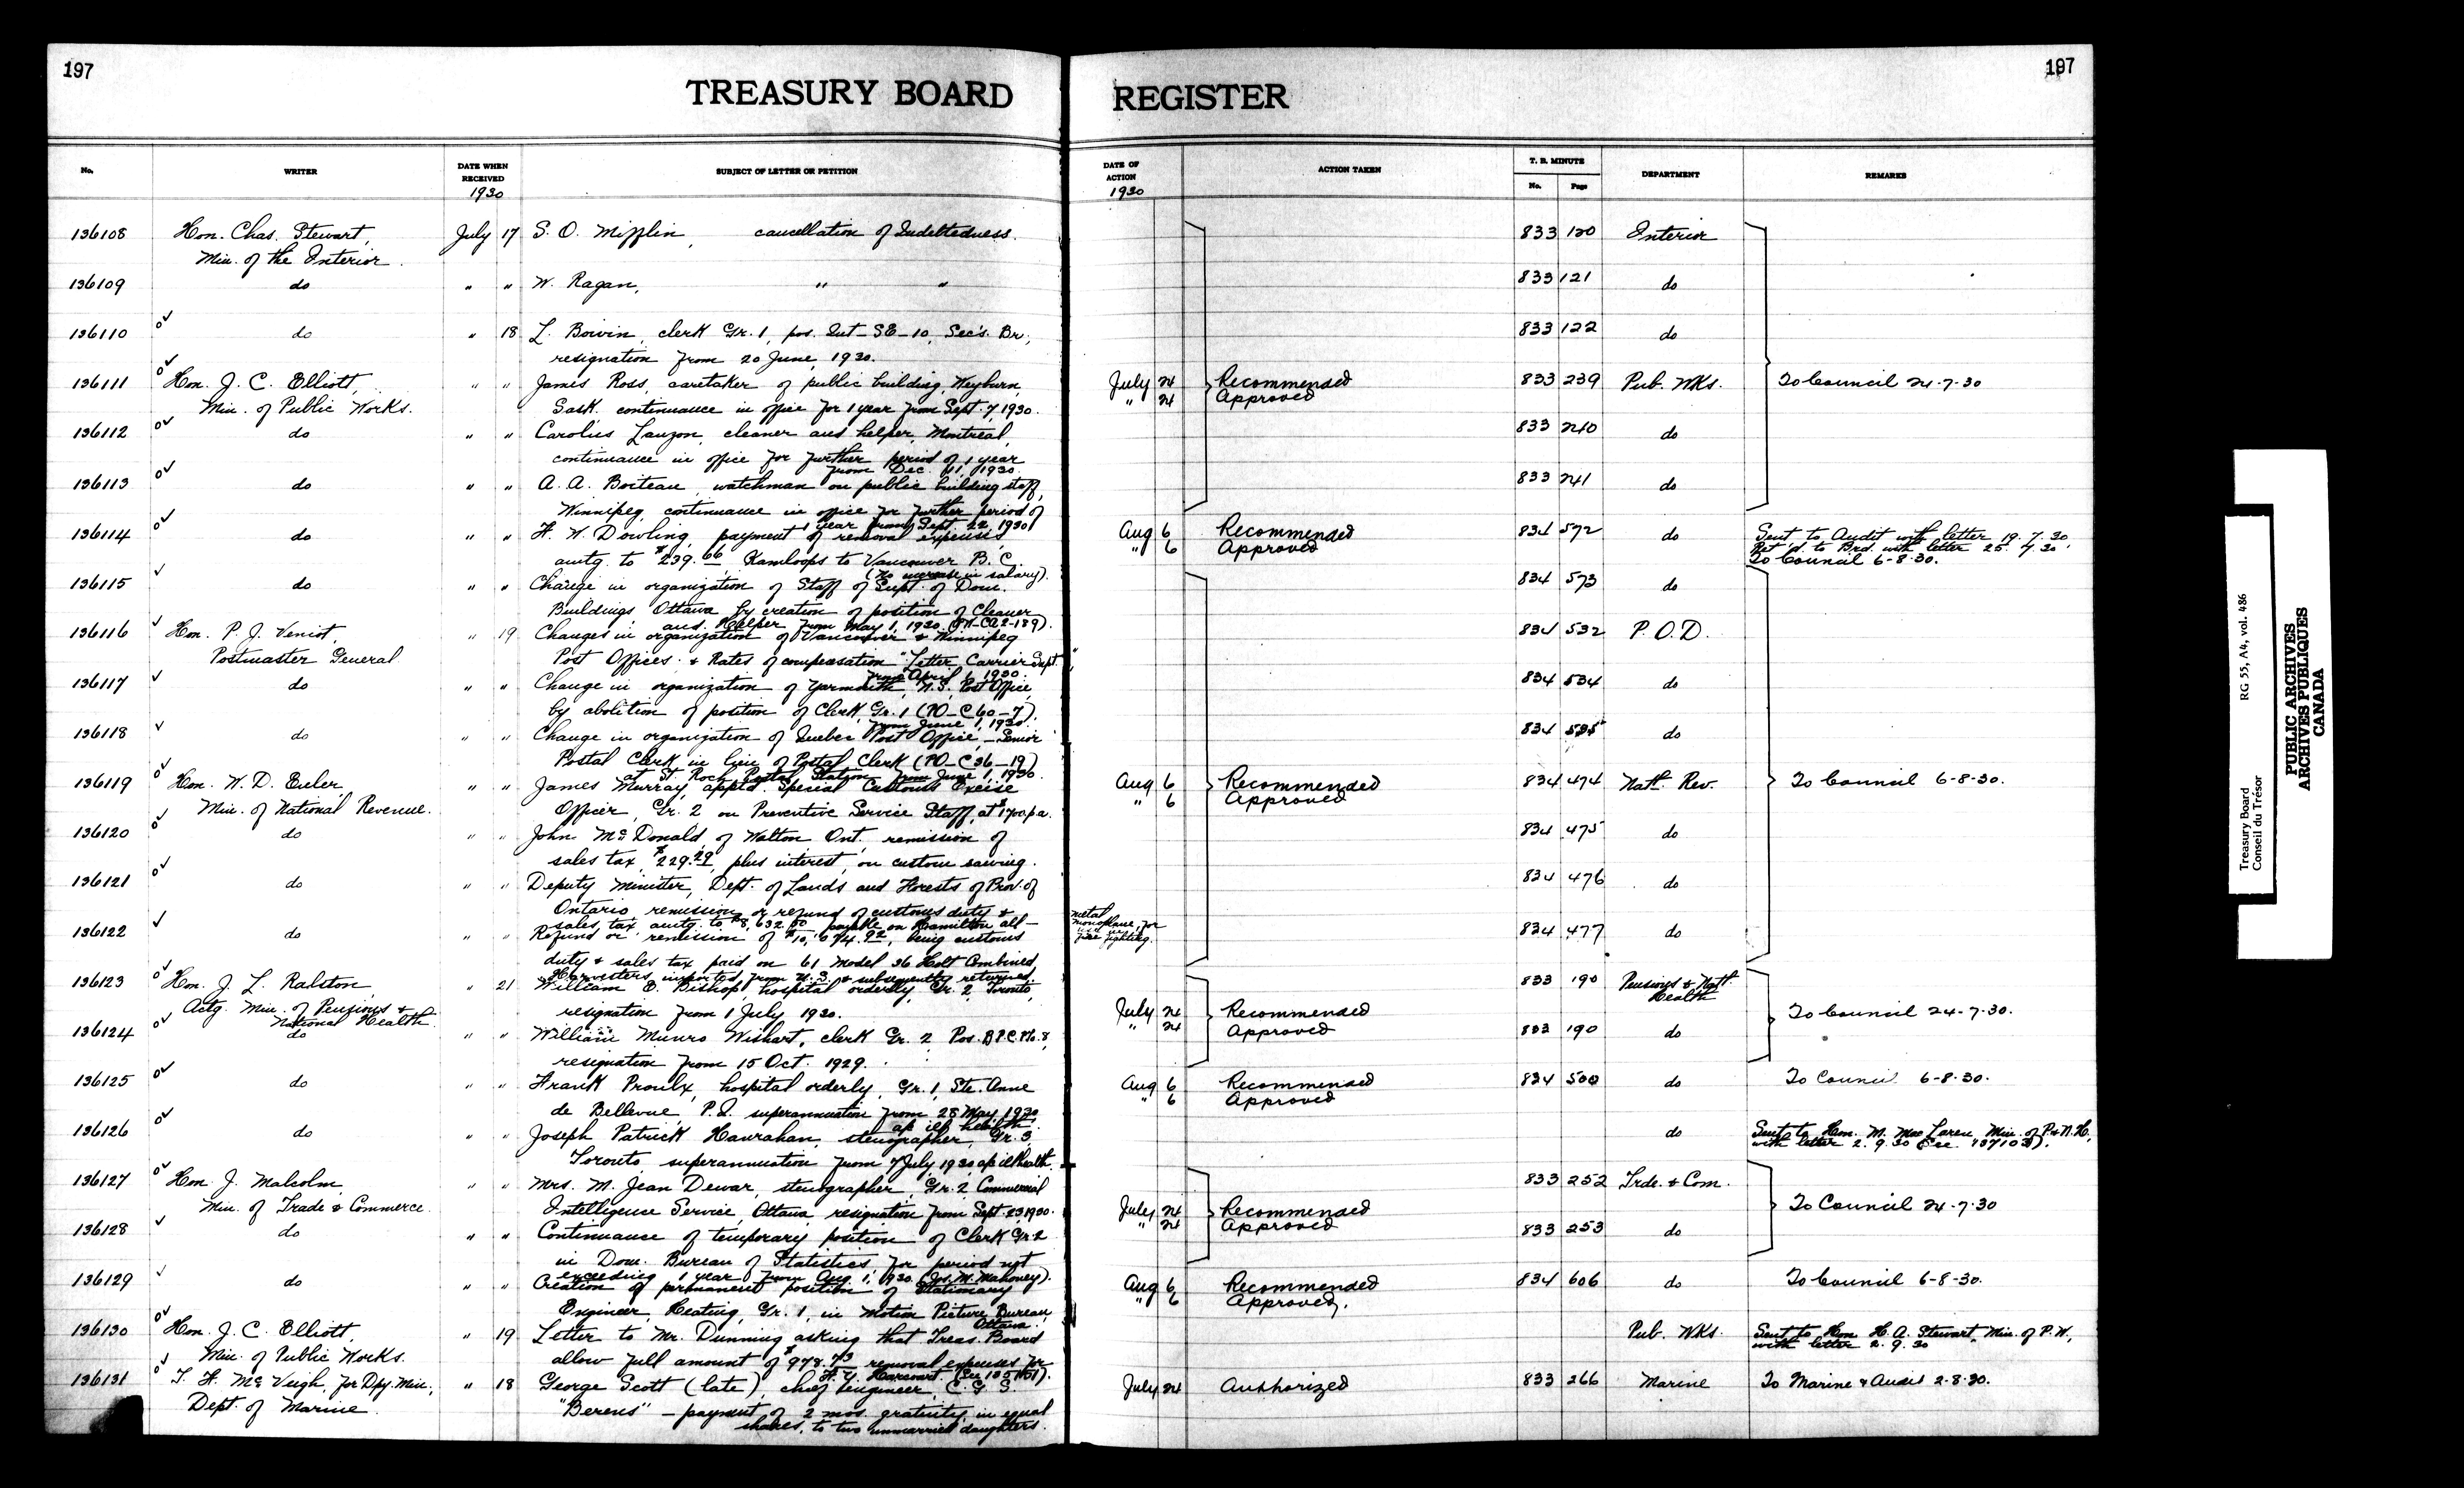 197
TREASURY BOARD
No.
WRITER
DATE WHEN RECEIVED
1930
SUBJECT OF LETTER OR PETITION
136108 Hon. Chas. Stewart, July 17 S. O. Mifflin, cancellation of Indebtedness.
Min. of the Interior.
136109 do " " W. Ragan, " "
136110 do " 18 L. Boivin, clerk Gr. 1, pos. Int-SE-10, Sec's. Br.,
resignation from 20 June, 1930.
136111 Hon. J. C. Elliott, " " James Ross, caretaker of public building, Weyburn,
Min. of Public Works. Sask. continuance in office for 1 year from Sept. 7, 1930.
136112 do " " Carolius Lauzon, cleaner and helper, Montreal,
continuance in office for further period of 1 year
from Dec. 11, 1930.
136113 do " " A. A. Boiteau, watchman on public building staff,
Winnipeg, continuance in office for further period of
1 year from Sept. 22, 1930
136114 do " " F. W. Dowling, payment of removal expenses
amtg. to $239.66, Kamloops to Vancouver B. C.
(No increase in salary).
136115 do " " Change in organization of Staff of Supt. of Dom.
Buildings Ottawa by creation of position of Cleaner
and Helper from May 1, 1930.
136116 Hon. P. J. Veniot, " 19 Changes in organization of Vancouver & Winnipeg
Postmaster General Post Offices & Rates of compensation "Letter Carrier Supt."
from April 1, 1930.
136117 do " " Change in organization of Yarmouth, N.S. Post Office,
by abolition of position of Clerk, Gr. 1 (PO-C60-7).
from June 1, 1930.
136118 do " " Change in organization of Quebec Post Office, - Senior
Postal Clerk in lieu of Postal Clerk (PO-C36-19)
at St. Roch Postal Station from June 1, 1930.
136119 Hon. W. D. Euler, " " James Murray, apptd. Special Customs Excise
Min. of National Revenue. Officer, Gr. 2 on Preventive Service Staff, at $1700 p.a.
136120 do " " John McDonald, of Walton Ont. remission of
sales tax, $229.29, plus interest, on custom sawing.
136121 do " " Deputy Minister, Dept. of Lands and Forests of Prov. of
Ontario, remission or refund of customs duty &
sales tax, amtg. to $8,632.50, payable on Hamilton all-
136122 do " " Refund or remission of $10,674.92, being customs
duty & sales tax paid on 61 Model 36 Holt Combined
Harvesters, imported from U.S. & subsequently returned.
136123 Hon. J. L. Ralston, " 21 William E. Bishop, hospital orderly, Gr. 2, Toronto,
Actg. Min. of Pensions & National Health resignation from 1 July 1930.
136124 do " " William Munro Wishart, clerk Gr. 2, Pos. B.P.C. No. 8,
resignation from 15 Oct. 1929.
136125 do " " Frank Proulx, hospital orderly, Gr. 1, Ste. Anne
de Bellevue, P.Q. superannuation from 28 May 1930
a/c ill health.
136126 do " " Joseph Patrick Hanrahan, stenographer, Gr. 3,
Toronto, superannuation from 7 July, 1930 a/c ill health.
136127 Hon. J. Malcolm, " " Mrs. M. Jean Dewar, stenographer, Gr. 2 Commercial
Min. of Trade & Commerce Intelligence Service, Ottawa, resignation from Sept. 23, 1930.
136128 do " " Continuance of temporary position of Clerk Gr. 2
in Dom. Bureau of Statistics for period not
exceeding 1 year from Aug. 1, 1930. (Jos. M. Mahoney).
136129 do " " Creation of permanent position of Stationary
Engineer, Heating, Gr. 1, in Motion Picture Bureau,
Ottawa.
136130 Hon. J. C. Elliott, " 19 Letter to Mr. Dunning asking that Treas. Board
Min. of Public Works. allow full amount of $978.73 removal expenses for
F. Y. Harcourt.
136131 T. H. McVeigh, for Dpy. Min., " 18 George Scott (late), chief engineer, C. G. S.
Dept. of Marine. "Berens" - payment of 2 mos. gratuity, in equal
shares, to two unmarried daughters.
197
REGISTER
DATE OF ACTION
1930
ACTION TAKEN
T. B. MINUTE
No. Page
DEPARTMENT
REMARKS
833 120 Interior
833 121 do
833 122 do
July 24 Recommended 833 239 Pub. Wks. To Council 24-7-30
" 24 Approved
833 240 do
833 241 do
Aug 6 Recommended 834 572 do Sent to Audit with letter 19.7.30.
" 6 Approved Ret'd. to Brd. with letter 25.7.30.
To Council 6-8-30.
834 573 do
834 532 P. O. D.
834 534 do
834 535 do
Aug 6 Recommended 834 474 Natl. Rev. To Council 6-8-30.
" 6 Approved
834 475 do
834 476 do
metal
monoplane, for
use in
fire fighting.
834 477 do
833 190 Pensions & Natl. Health
July 24 Recommended To Council 24-7-30.
" 24 Approved 833 190 do
Aug 6 Recommended 834 500 do To Council 6-8-30.
" 6 Approved
do Sent to Hon. M. MacLaren, Min. of P. & N.H.,
with letter 2.9.30
833 252 Trde. & Com.
July 24 Recommended To Council 24-7-30
" 24 Approved 833 253 do
Aug 6 Recommended 834 606 do To Council 6-8-30.
" 6 Approved.
Pub. Wks. Sent to Hon. H. A. Stewart, Min. of P.W.,
with letter 2.9.30
July 24 Authorized 833 266 Marine To Marine & Audit 2-8-30.
Treasury Board RG 55, A4, vol. 486
Conseil du Trésor
PUBLIC ARCHIVES
ARCHIVES PUBLIQUES
CANADA